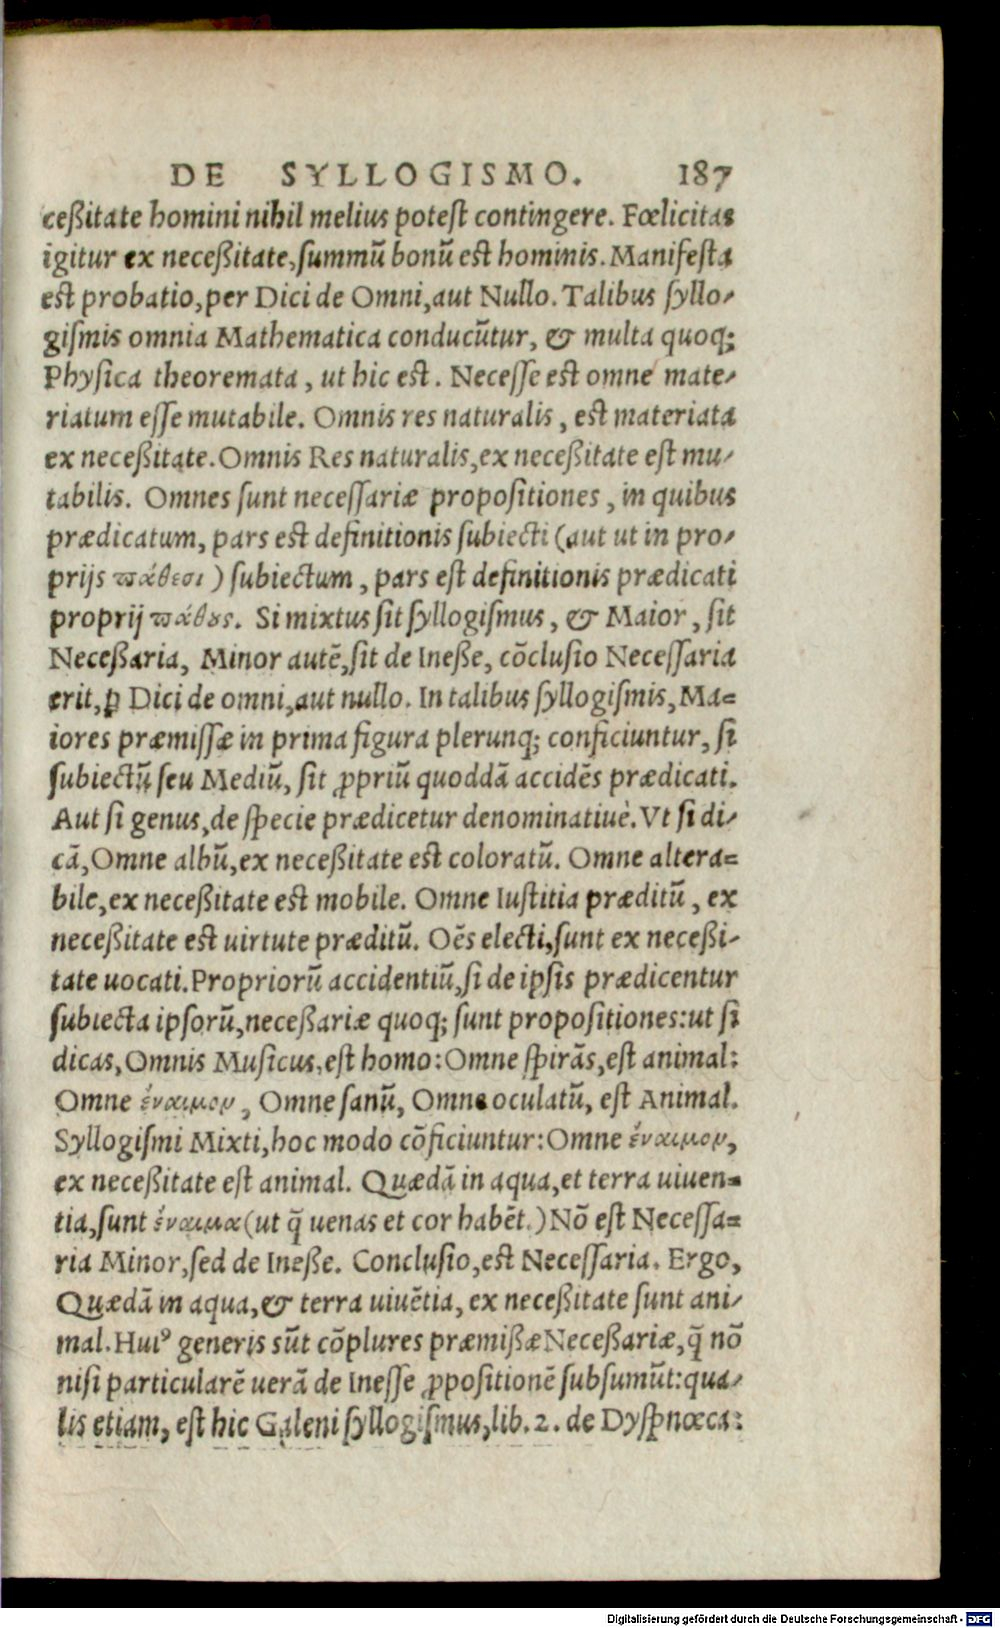 DE SYLLOGISMO. 187
ceßitate homini nihil melius potest contingere. Fœlicitas
igitur ex neceßitate, summũ bonũ est hominis. Manifesta
est probatio, per Dici de Omni, aut Nullo. Talibus syllo-
gismis omnia Mathematica conducũtur, & multa quoq;
Physica theoremata, ut hic est. Necesse est omne mate-
riatum esse mutabile. Omnis res naturalis, est materiata
ex neceßitate. Omnis Res naturalis, ex neceßitate est mu-
tabilis. Omnes sunt necessariæ propositiones, in quibus
prædicatum, pars est definitionis subiecti (aut ut in pro-
prijs πάθεσι) subiectum, pars est definitionis prædicati
proprij πάθους. Si mixtus sit syllogismus, & Maior, sit
Neceßaria, Minor autẽ, sit de Ineße, cõclusio Necessaria
erit, ꝑ Dici de omni, aut nullo. In talibus syllogismis, Ma=
iores præmissæ in prima figura plerunq; conficiuntur, si
subiectũ seu Mediũ, sit ꝓpriũ quoddã accidẽs prædicati.
Aut si genus, de specie prædicetur denominatiuè. Vt si di-
cã, Omne albũ, ex neceßitate est coloratũ. Omne altera=
bile, ex neceßitate est mobile. Omne Iustitia præditũ, ex
neceßitate est uirtute præditũ. Oẽs electi, sunt ex neceßi-
tate uocati. Propriorũ accidentiũ, si de ipsis prædicentur
subiecta ipsorũ, neceßariæ quoq; sunt propositiones: ut si
dicas, Omnis Musicus, est homo: Omne spirãs, est animal:
Omne ἔναιμον, Omne sanũ, Omne oculatũ, est Animal.
Syllogismi Mixti, hoc modo cõficiuntur: Omne ἔναιμον,
ex neceßitate est animal. Quædã in aqua, et terra uiuen=
tia, sunt ἔναιμα (ut q̃ uenas et cor habẽt.) Nõ est Necessa=
ria Minor, sed de Ineße. Conclusio, est Necessaria. Ergo,
Quædã in aqua, & terra uiuẽtia, ex neceßitate sunt ani-
mal. Huiꝰ generis sũt cõplures præmißæ Neceßariæ, q̃ nõ
nisi particularẽ uerã de Inesse ꝓpositionẽ subsumũt: qua-
lis etiam, est hic Galeni syllogismus, lib. 2. de Dyspnœca:
Digitalisierung gefördert durch die Deutsche Forschungsgemeinschaft - DFG